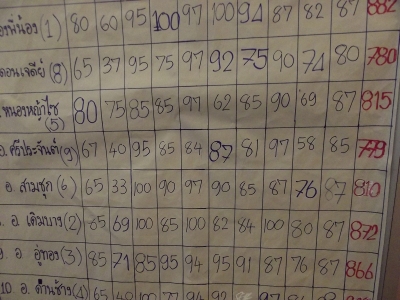 องพี่น้อง (1) 80 60 95 100 97 100 94 87 82 87 882
ดอนเจดีย์ (8) 65 37 95 75 97 92 75 90 74 80 780
.หนองหญ้าไซ (5) 80 75 85 85 97 62 85 90 69 87 815
อ. ศรีประจันต์ (9) 67 40 95 85 84 87 81 97 58 85 779
อ. สามชุก (6) 65 33 100 90 97 90 85 87 76 87 810
. อ. เดิมบาง (2) 85 69 100 85 100 82 84 100 80 87 872
9. อ. อู่ทอง (3) 85 71 85 95 94 95 91 87 76 87 866
10 อ. ด่านช้าง (4) 65 40 100 77 94 92